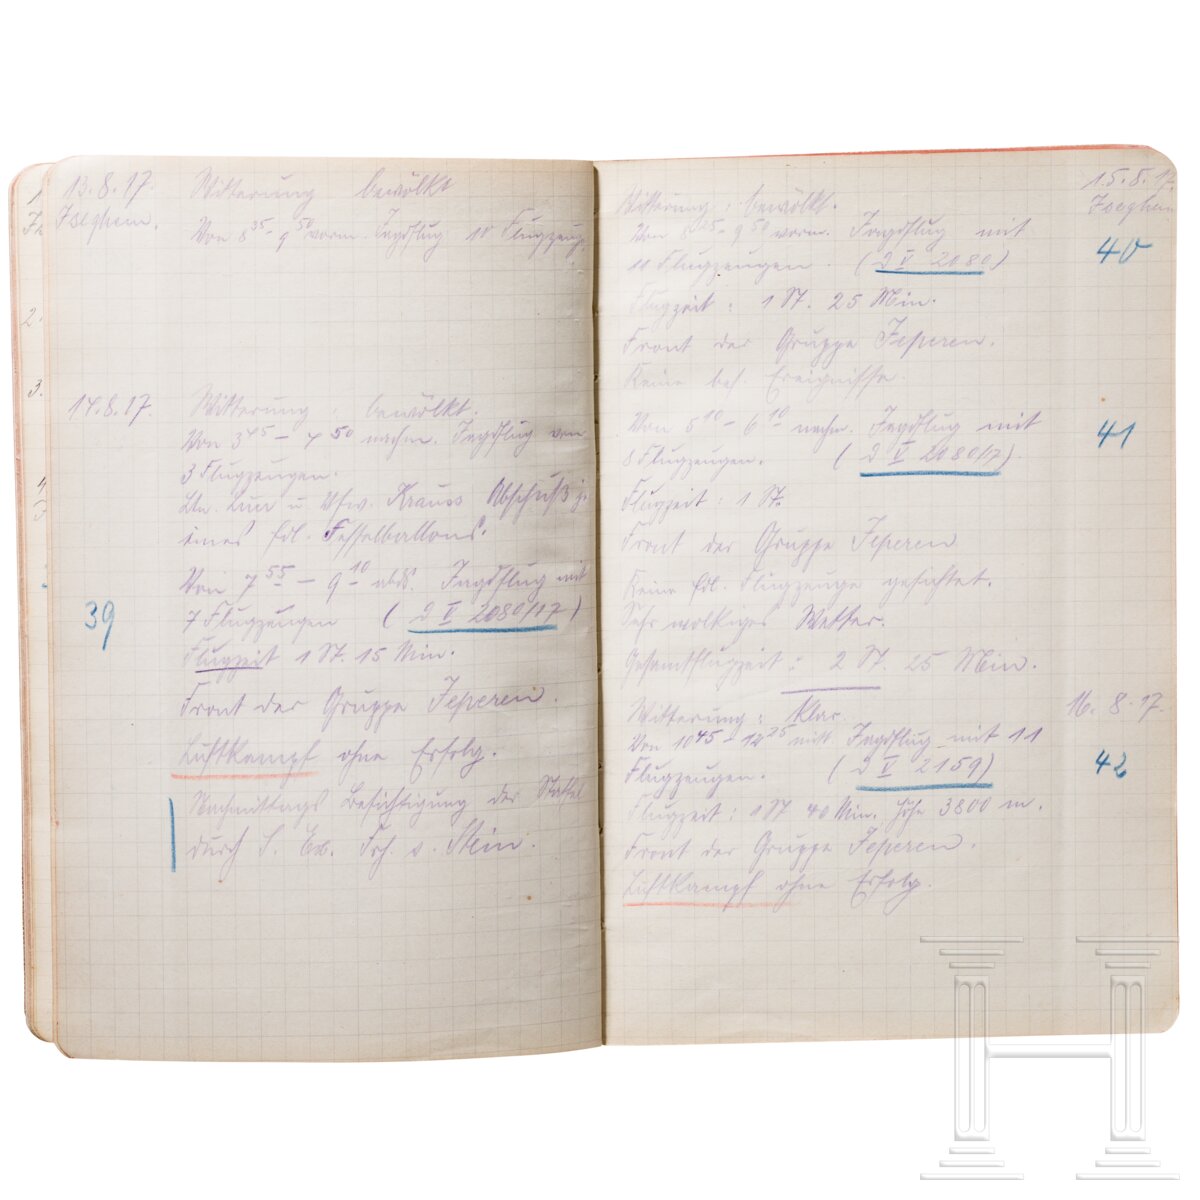 13.8.17. Witterung bewölkt
Iseghem. Von 8 35 - 9 50 vorm. Jagdflug 10 Flugzeuge
14.8.17. Witterung: bewölkt.
Von 3 45 - 4 50 nachm. Jagdflug von
3 Flugzeugen.
Ltn. u. Vfw. Krauss Abschuß je
eines fdl. Fesselballons.
Von 7 55 - 9 10 abds. Jagdflug mit
39 7 Flugzeugen (D V 2080/17)
Flugzeit 1 St. 15 Min.
Front der Gruppe Jeperen.
Luftkampf ohne Erfolg.
Nachmittags Besichtigung der Staffel
durch S. Exc. Frh. v. Stein.
15.8.17.
Iseghem
Witterung: bewölkt.
Von 8 25 - 9 50 vorm. Jagdflug mit
40
11 Flugzeugen. (D V 2080)
Flugzeit: 1 St. 25 Min.
Front der Gruppe Jeperen.
Keine bes. Ereignisse.
Von 5 10 - 6 10 nachm. Jagdflug mit
41
8 Flugzeugen. (D V 2080/17)
Flugzeit: 1 St.
Front der Gruppe Jeperen
Keine fdl. Flugzeuge gesichtet.
Sehr wolkiges Wetter.
Gesamtflugzeit: 2 St. 25 Min.
16.8.17.
Witterung: klar.
Von 10 45 - 12 25 mitt. Jagdflug mit 11
42
Flugzeugen. (D V 2159)
Flugzeit: 1 St 40 Min. Höhe 3800 m.
Front der Gruppe Jeperen.
Luftkampf ohne Erfolg.